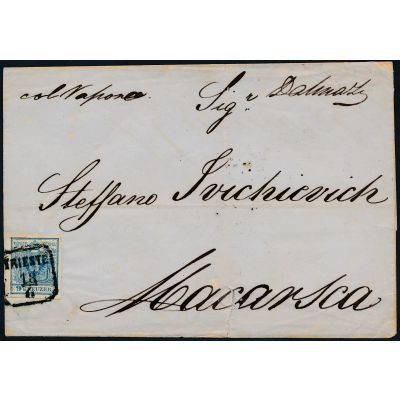 col Vapore.
Sigr Dalmazia
Steffano Ivichievich
Macarsca
TRIESTE
13
9 KREUZER